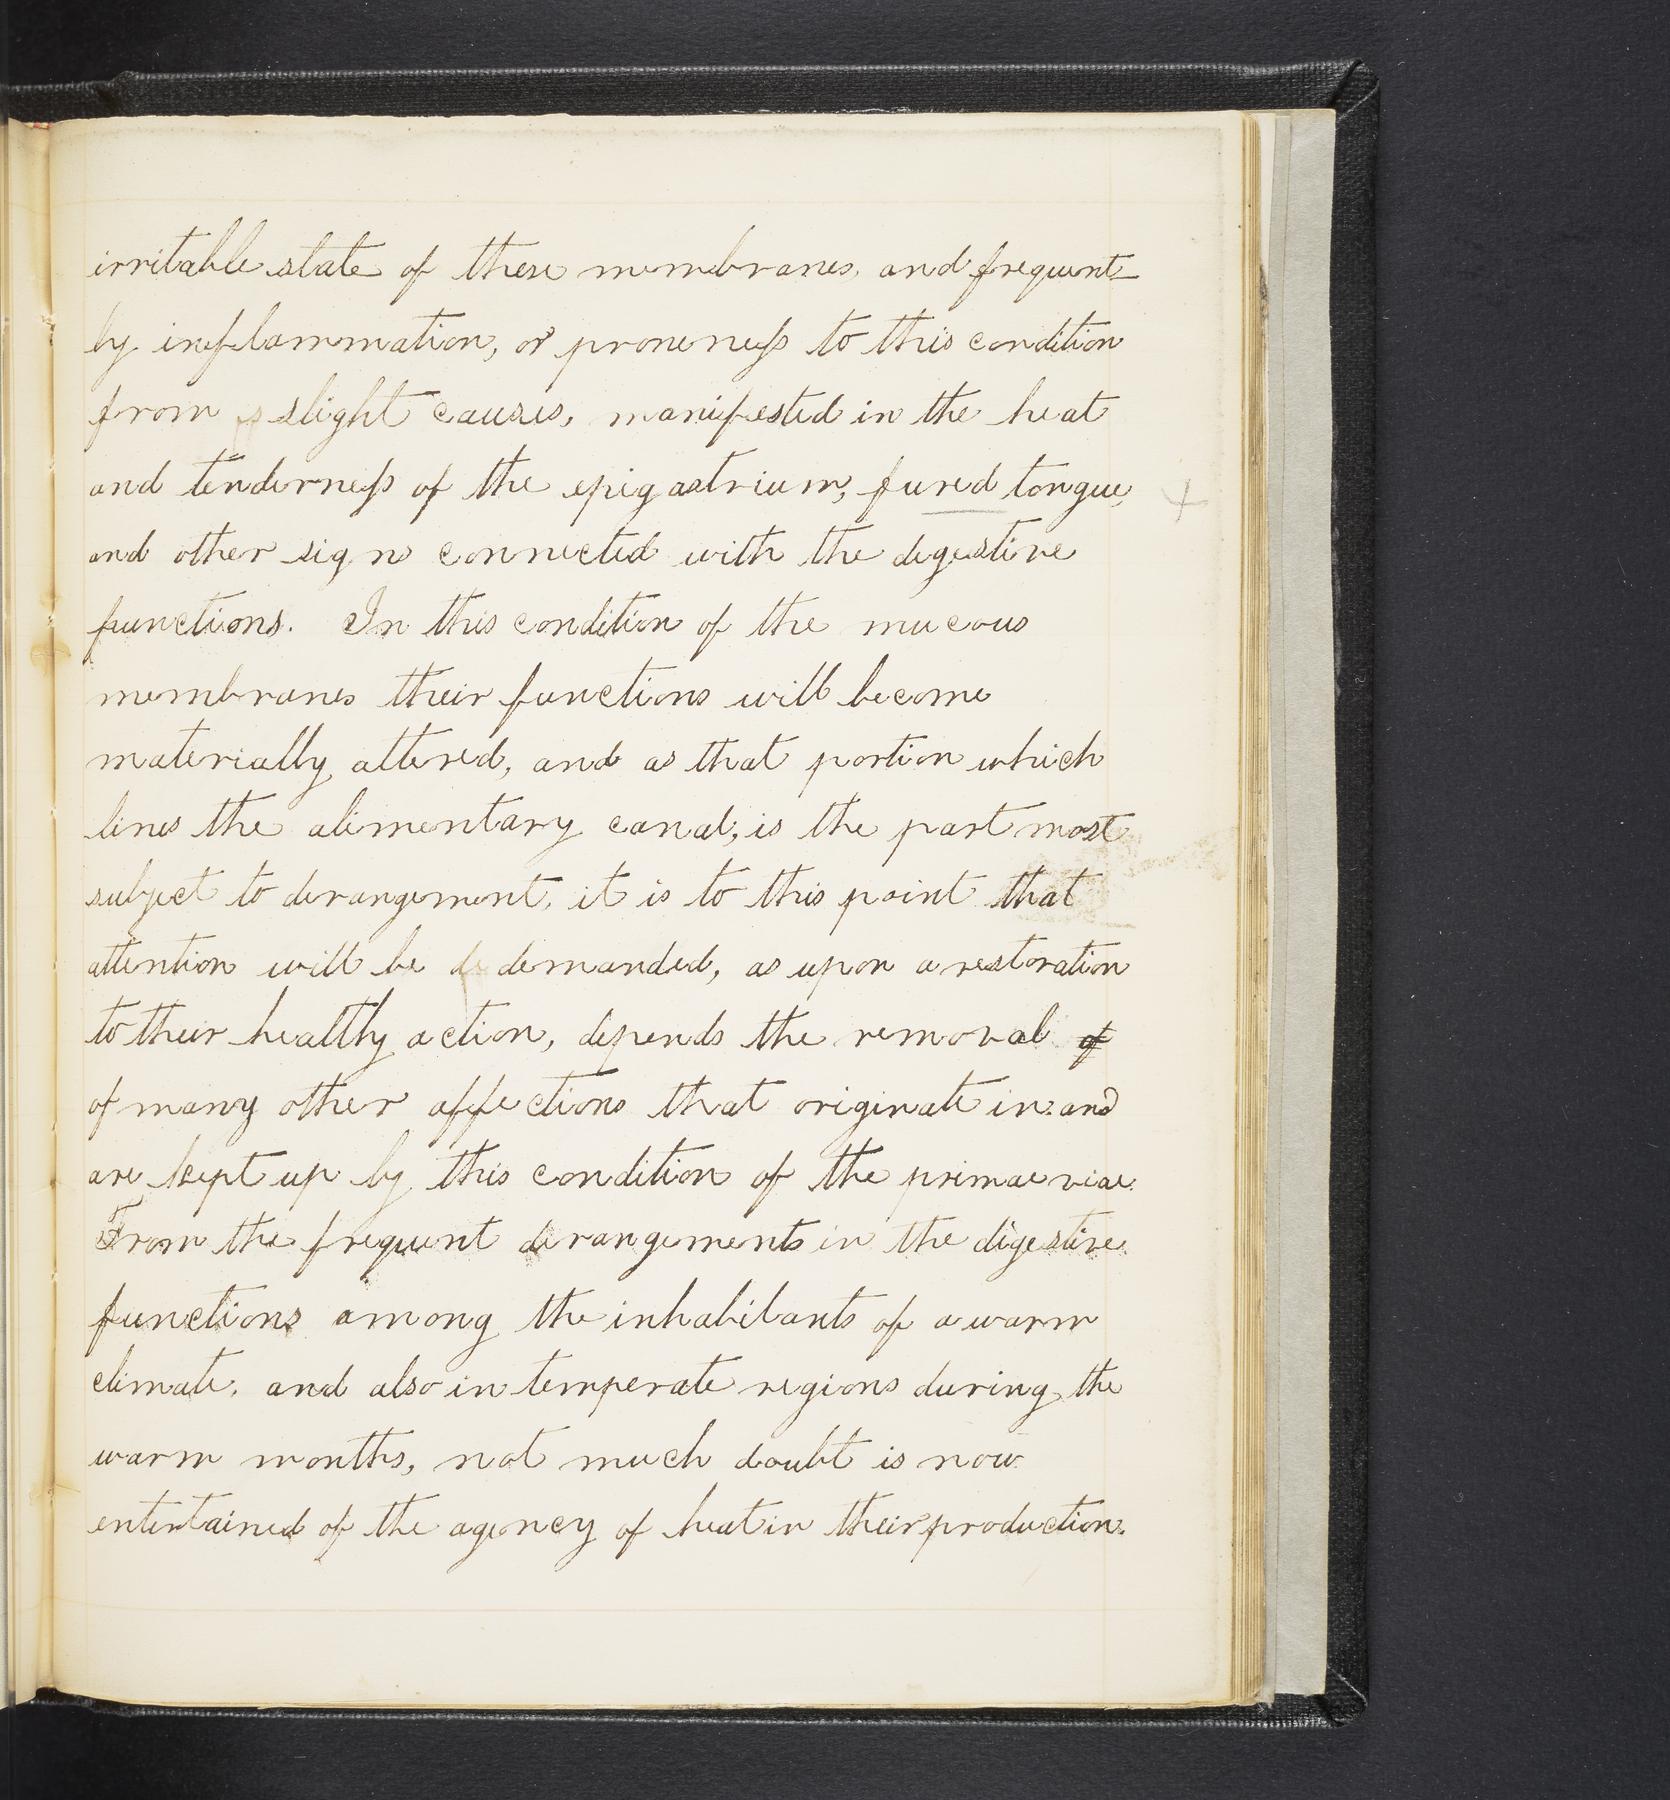 irritable state of these membranes, and frequent
by inflammation, or proneness to this condition
from slight causes, manifested in the heat
and tenderness of the epigastrium, fured tongue,
and other sign connected with the degestive
functions. In this condition of the mucous
membranes their functions will become
materially altered, and as that portion which
lines the alimentary canal, is the part most
subject to derangement, it is to this point that
attention will be demanded, as upon a restoration
to their healthy action, depends the removal of
of many other affections that originate in and
are kept up by this condition of the primae viae.
From the frequent derangements in the digestive
functions among the inhabitants of a warm
climate, and also in temperate regions during the
warm months, not much doubt is now
entertained of the agency of heat in their production.